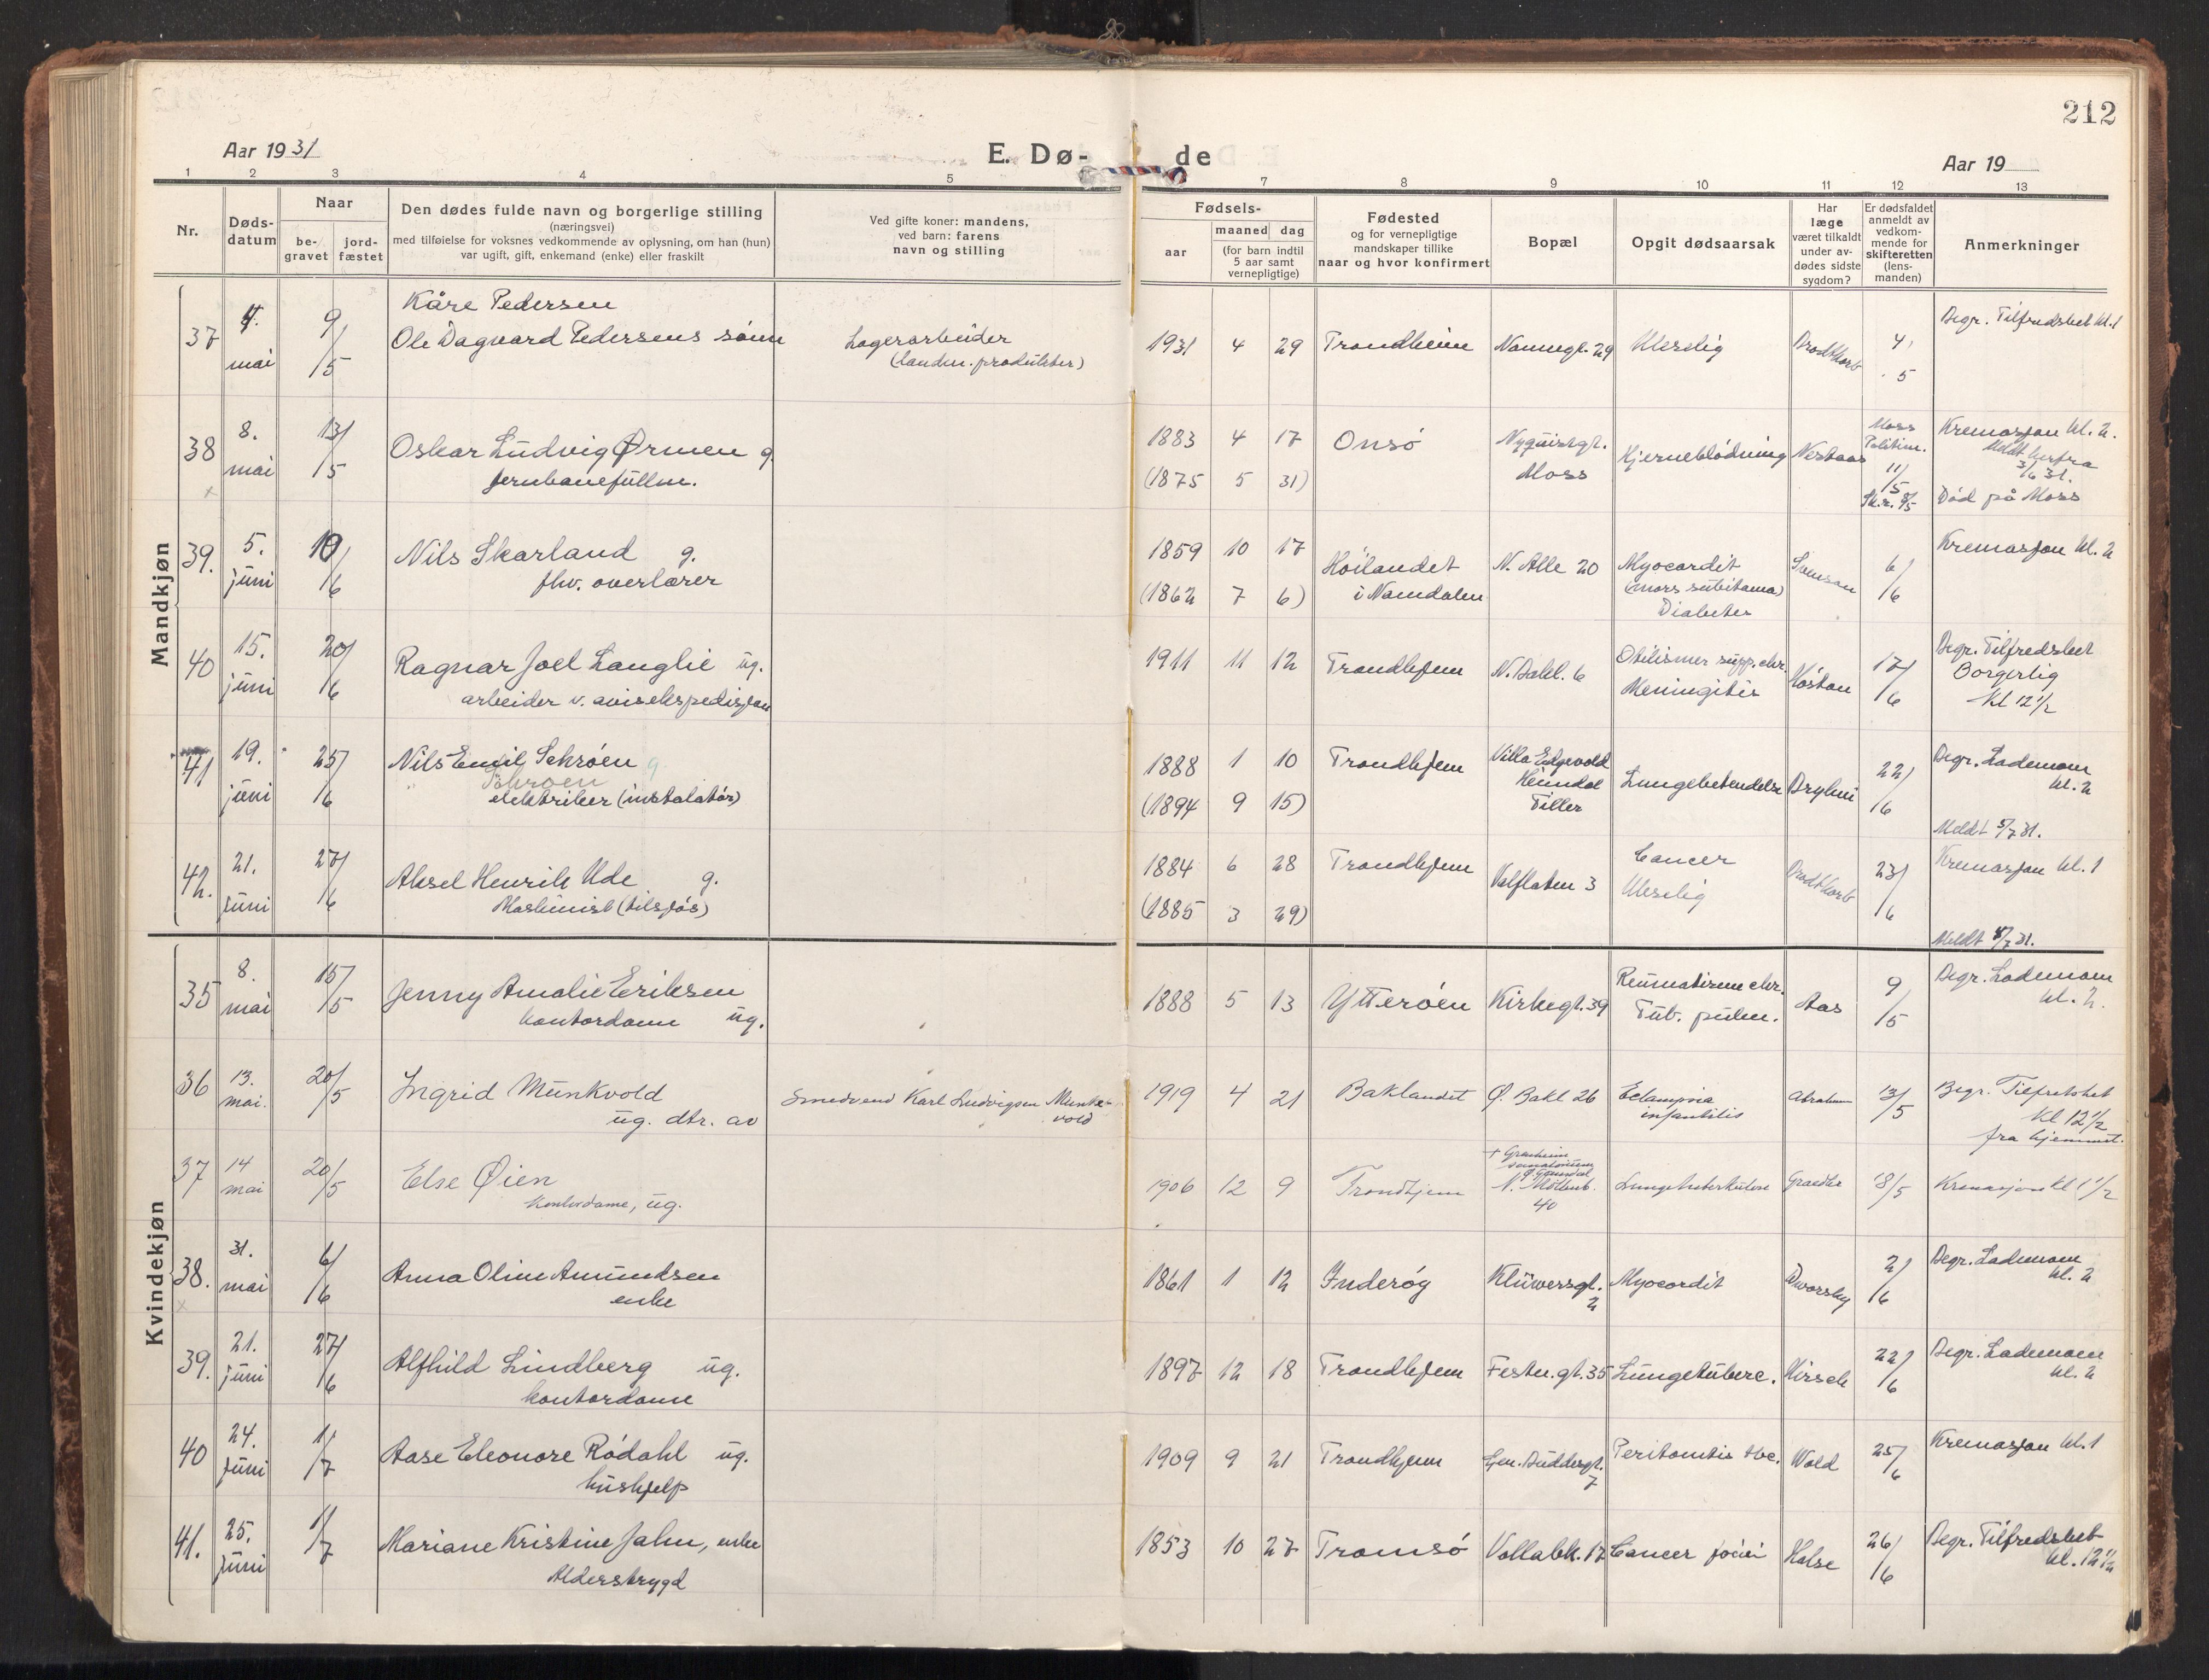 212
Aar 1931
E. Dø-
de
Aar 19
1 2 3 4 5 7 8 9 10 11 12 13
Nr.
Døds-
datum
Naar
be-
gravet
jord-
fæstet
Den dødes fulde navn og borgerlige stilling
(næringsvei)
med tilføielse for voksnes vedkommende av oplysning, om han (hun)
var ugift, gift, enkemand (enke) eller fraskilt
Ved gifte koner: mandens,
ved barn: farens
navn og stilling
Fødsels-
aar
maaned dag
(for barn indtil
5 aar samt
vernepligtige)
Fødested
og for vernepligtige
mandskaper tillike
naar og hvor konfirmert
Bopæl
Opgit dødsaarsak
Har
læge
været tilkaldt
under av-
dødes sidste
sygdom?
Er dødsfaldet
anmeldt av
vedkom-
mende for
skifteretten
(lens-
manden)
Anmerkninger
Mandkjøn
37 4. mai 9/5 Kåre Pedersen
Ole Dagvard Pedersens sønn
Lagerarbeider
(landm. produkter)
1931 4 29 Trondheim Nonnegt. 29 Uleselig Brodtkorb 4/5
Begr. Tilfredshet kl. 1
38 8. mai 13/5 Oskar Ludvig Ørmen g.
jernbanefullm.
1883 4 17
(1875 5 31)
Onsø
Nyquistgt.
Moss
Hjerneblødning Nestaas
Moss
Politim.
11/5
Sk.r. 8/5
Kremasjon kl. 2.
Meldt herfra
3/6 31.
Død på Moss
39. 5. juni 10/6 Nils Skarland g.
fhv. overlærer
1859 10 17
(1862 7 6)
Høilandet
i Namdalen
N. Alle 20
Myocardit
(mors subitanea)
Diabetes
Svenson 6/6
Kremasjon kl. 2
40 15. juni 20/6 Ragnar Joel Langlie ug.
arbeider v. avisekspedisjon
1911 11 12 Trondhjem N. Bakl. 6
supp. chr.
Meningitis
Høston 17/6
Begr. Tilfredshet
Borgerlig
kl 12 1/2
41 19. juni 25/6 Nils Emil Schrøen g
Schroen
elektriker (instalatør)
1888 1 10
(1894 9 15)
Trondhjem
Villa
Heimdal
Tiller
Lungebetendelse 22/6
Begr. Lademoen
kl. 2
Meldt 5/7 31.
42. 21. juni 27/6 Aksel Henrik Ude g.
Maskinist (tilsjøs)
1884 6 28
(1885 3 29)
Trondhjem Kalflaten 3
Cancer
Uleselig
Brodtkorb 23/6
Kremasjon kl. 1
Meldt 8/7 31.
Kvindekjøn
35 8. mai 15/5 Jenny Amalie Eriksen
kontordame ug.
1888 5 13 Ytterøen Kirkegt. 39
Reumatisme chr.
Tub. pulm.
Aas 9/5
Begr. Lademoen
kl. 2.
36 13. mai. 20/5 Ingrid Munkvold
ug. dtr. av
Smedsvend Karl Ludvigsen Munk-
vold
1919 4 21 Baklandet Ø. Bakl 26
Eclampsia
infantilis
Abraham 13/5
Begr. Tilfredshet
kl 12 1/2
fra hjemmet.
37 14 mai 20/5 Else Øien
Kontordame, ug.
1906 12 9 Trondhjem
+ Granheim
sanatorium
Ø. Gausdal
N. Møllenb.
40
Lungetuberkulose 18/5
Kremasjon kl 1 1/2
38. 31. mai 6/6 Anna Oline Amundsen
enke
1861 1 12 Inderøy
Klüwersgt.
2
Myocardit Dworsky 2/6
Begr. Lademoen
kl. 2
39. 21. juni 27/6 Alfhild Lindberg ug.
kontordame
1897 12 18 Trondhjem Festn.gt. 35 Lungetuberc. Hirsch 22/6
Begr. Lademoen
kl. 2
40 24. juni 1/7 Aase Eleonore Rødahl ug.
hushjelp
1909 9 21 Trondhjem
Gen. Buddesgt.
7
Peritonitis tbc. Wold 25/6
Kremasjon kl. 1
41. 25. juni 1/7 Mariane Kristine Jahn, enke
Alderstrygd
1853 10 27 Tromsø Vollabk. 17 Cancer Halse 26/6
Begr. Tilfredshet
kl. 12 1/2